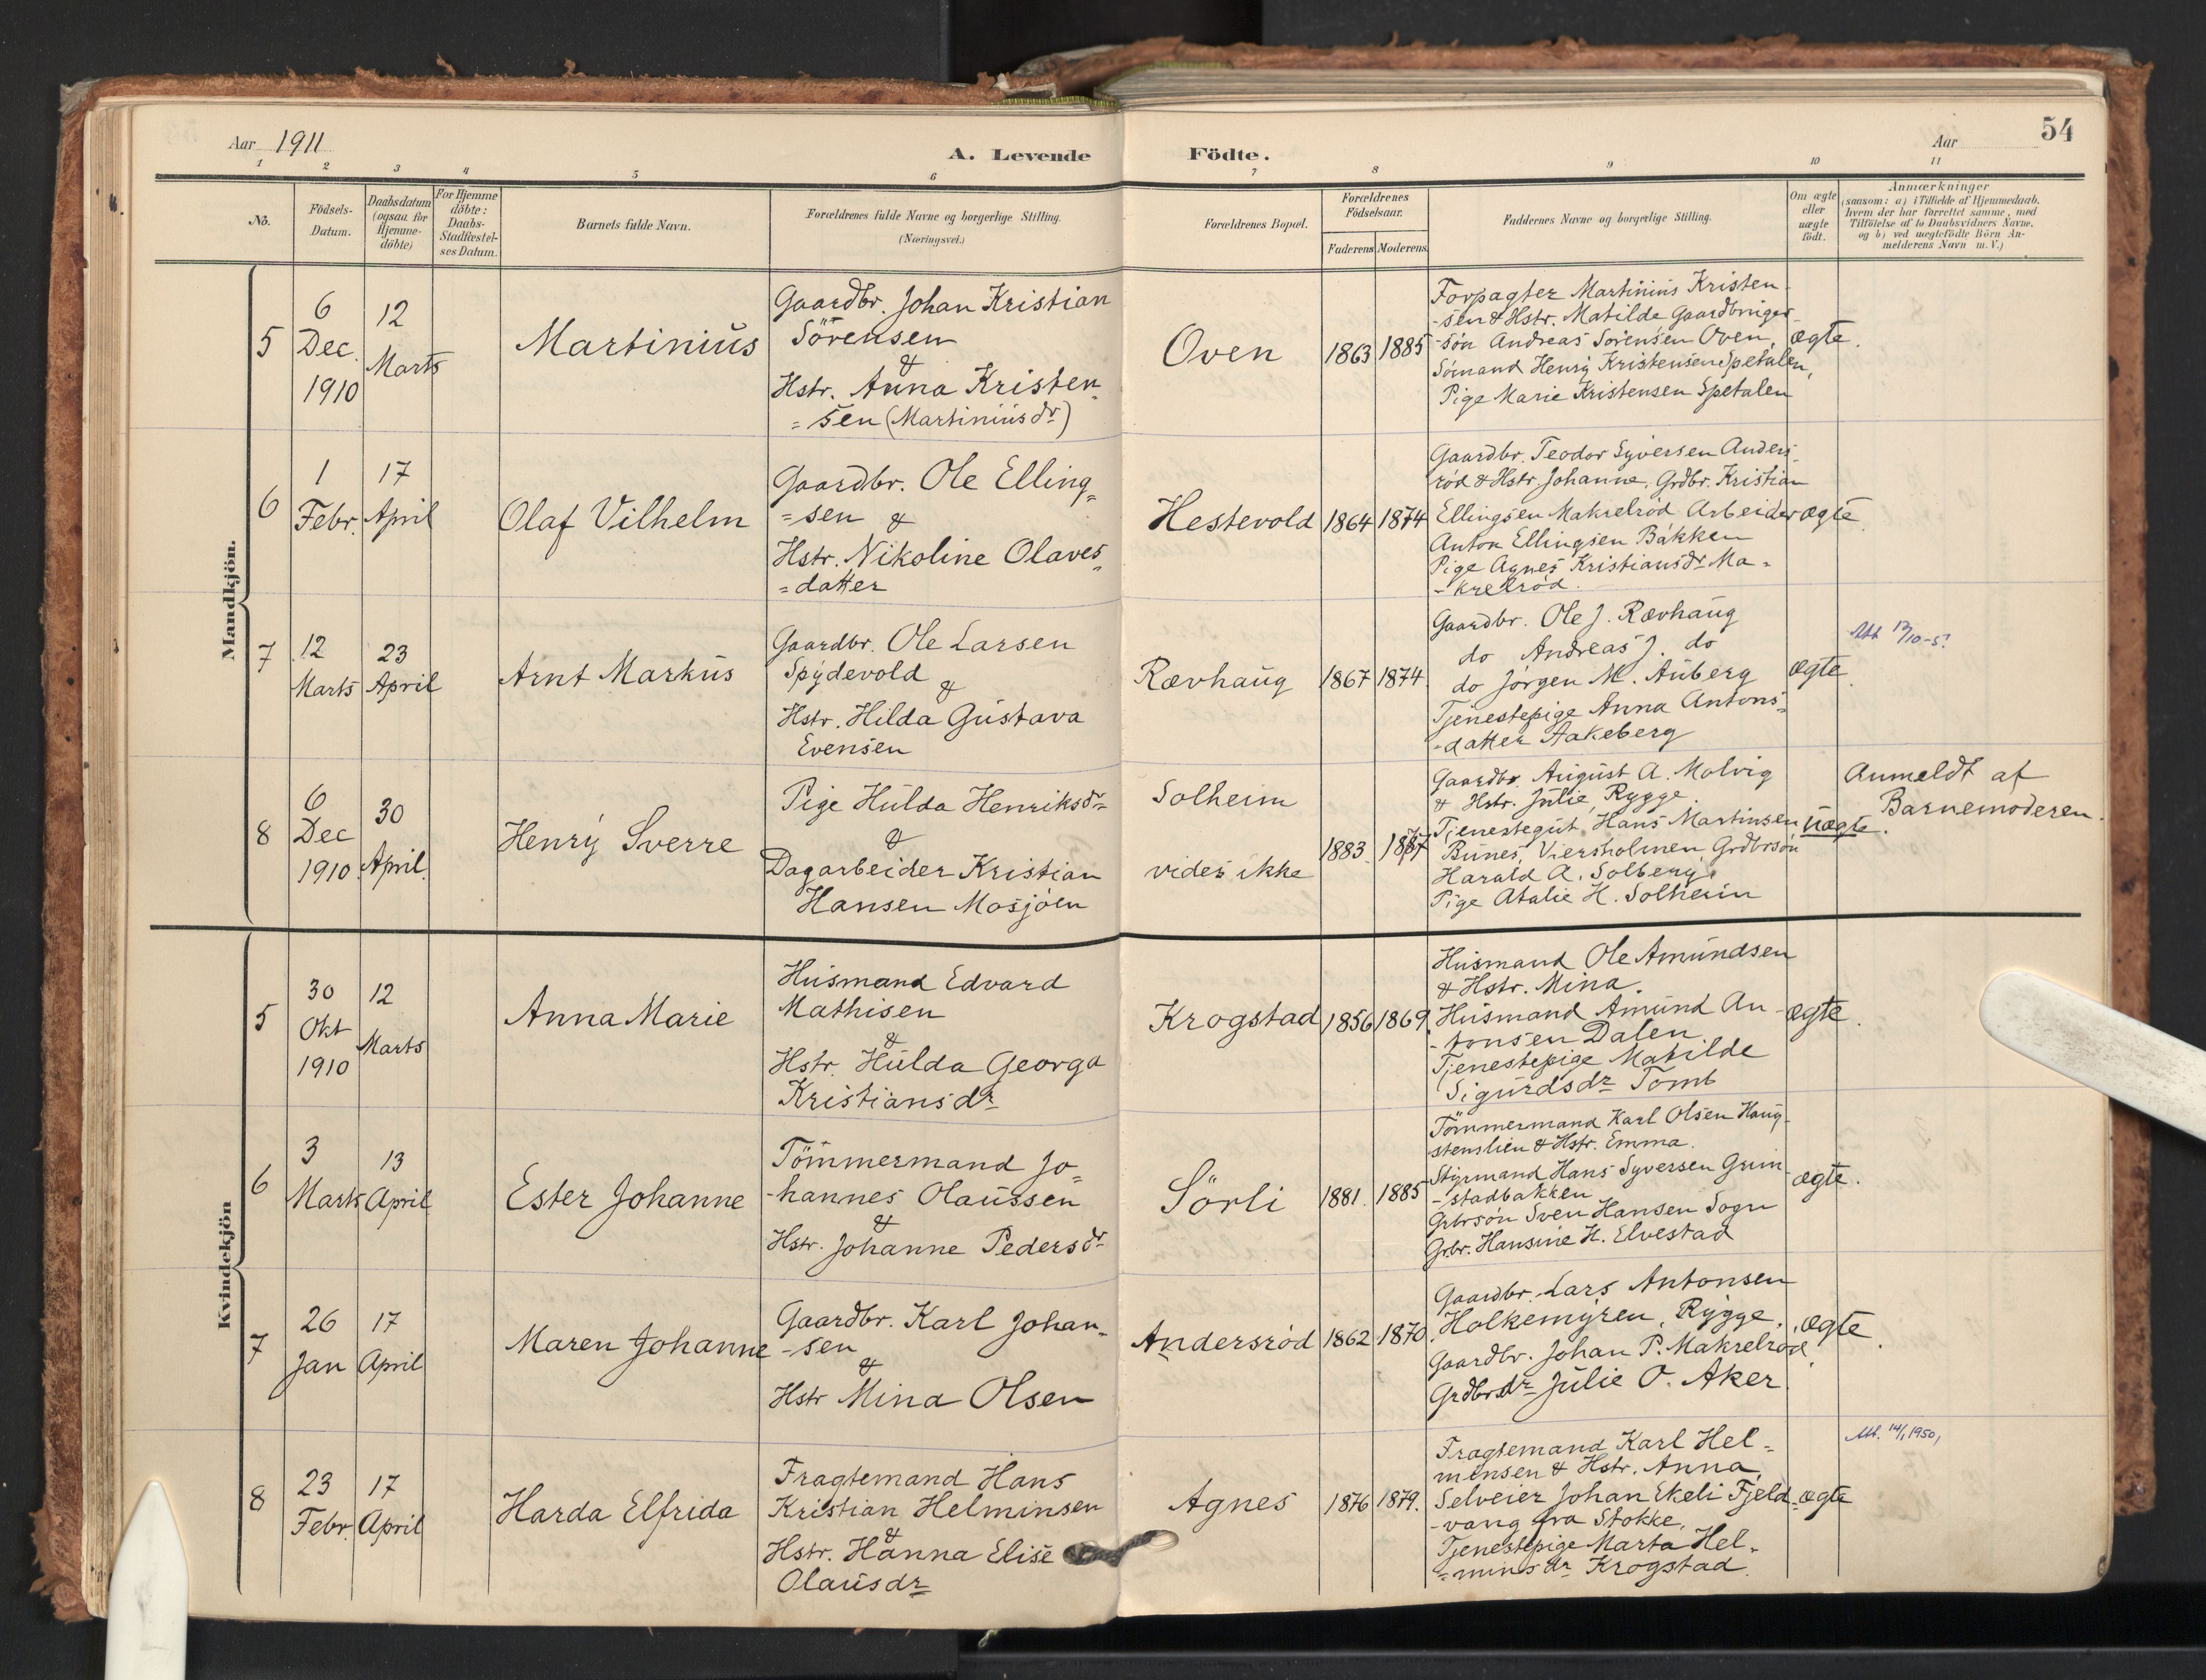 Aar 1911
A. Levende Födte.
Aar
54
1 2 3 4 5 6 7 8 9 10 11
No.
Födsels-Datum.
Daabsdatum (ogsaa for Hjemme-döbte)
For Hjemme döbte: Daabs-Stadfæstel-ses Datum.
Barnets fulde Navn.
Forældrenes fulde Navne og borgerlige Stilling.
(Næringsvei.)
Forældrenes Bopæl.
Forældrenes Födselsaar.
Faderens Moderens
Faddernes Navne og borgerlige Stilling.
Om ægte eller uægte födt.
Anmærkninger
(saasom: a) i Tilfælde af Hjemmedaab,
hvem der har forrettet samme, med
Tilföielse af to Daabsvidners Navne,
og b) ved uægtefödte Börn An-
melderens Navn m. V.)
Mandkjön.
5
6
Dec.
1910
12
Marts
Martinius
Gaardbr. Johan Kristian
Sörensen
&
Hstr. Anna Kristen-
=sen (Martiniusdr)
Oven
1863
1885
Forpagter Martinius Kristen-
-sen & Hstr. Matilde Gaardbruger-
-søn Andreas Sørensen Oven,
Sømand Henry Kristensen Spetalen,
Pige Marie Kristensen Spetalen
ægte.
6
1
Febr.
17
April
Olaf Vilhelm
Gaardbr. Ole Elling=
=sen &
Hstr. Nikoline Olaves=
=datter
Hestevold
1864
1874
Gaardbr. Teodor Syversen Anders-
rød & Hstr. Johanne, Grdbr. Kristian
Ellingsen Makrelrød Arbeider
Anton Ellingsen Bakken
Pige Agnes Kristiansdr Ma-
-krelrød.
ægte
7
12
Marts
23
April
Arnt Markus
Gaardbr. Ole Larsen
Spydevold
&
Hstr. Hilda Gustava
Evensen
Rævhaug
1867
1874
Gaardbr. Ole J. Rævhaug
do Andreas J. do
do Jørgen M. Auberg
Tjenestepige Anna Antons=
-datter Aakeberg
ægte.
8
6
Dec
1910
30
April.
Henry Sverre
Pige Hulda Henriksdr
&
Dagarbeider Kristian
Hansen Mosjøen
Solheim
vides ikke
1883
Gaardbr. August A. Molvig
& Hstr. Julie, Rygge.
Tjenestegut Hans Martinsen
Bunes, Viersholmen, Grdbrsøn
Harald A. Solberg,
Pige Atalie H. Solheim
uægte.
Anmeldt af
Barnemoderen.
Kvindekjön
5
30
Okt
1910
12
Marts
Anna Marie
Husmand Edvard
Mathisen
&
Hstr. Hulda Georga
Kristiansdr
Krogstad
1856
1869
Husmand Ole Amundsen
& Hstr. Mina.
Husmand Amund An-
-tonsen Dalen
Tjenestepige Matilde
Sigurdsdr Tomb
ægte.
6
3
Marts
13
April
Ester Johanne
Tömmermand Jo=
-hannes Olaussen
&
Hstr. Johanne Pedersdr
Sörli
1881.
1885
Tømmermand Karl Olsen Haug-
stenslien & Hstr. Emma.
Styrmand Hans Syversen Grim-
-stadbakken
Grbrsøn Sven Hansen Sogn
Grbr. Hansine H. Elvestad
ægte.
7
26
Jan
17
April
Maren Johanne
Gaardbr. Karl Johan-
-sen
&
Hstr Mina Olsen
Andersrød
1862
1870
Gaardbr. Lars Antonsen
Holkemyren, Rygge.
Gaardbr. Johan P. Makrelrød,
Grdbrsdr Julie O. Aker.
ægte.
8
23
Febr.
17
April
Harda Elfrida
Fragtemand Hans
Kristian Helminsen
&
Hstr. Hanna Elise
Olausdr
Agnes
1876
1879.
Fragtemand Karl Hel-
minsen & Hstr. Anna,
Selveier Johan Ekeli Fjeld-
-vang fra Stokke,
Tjenestepige Marta Hel-
=minsdr Krogstad.
ægte
Att. 14/1 1950,